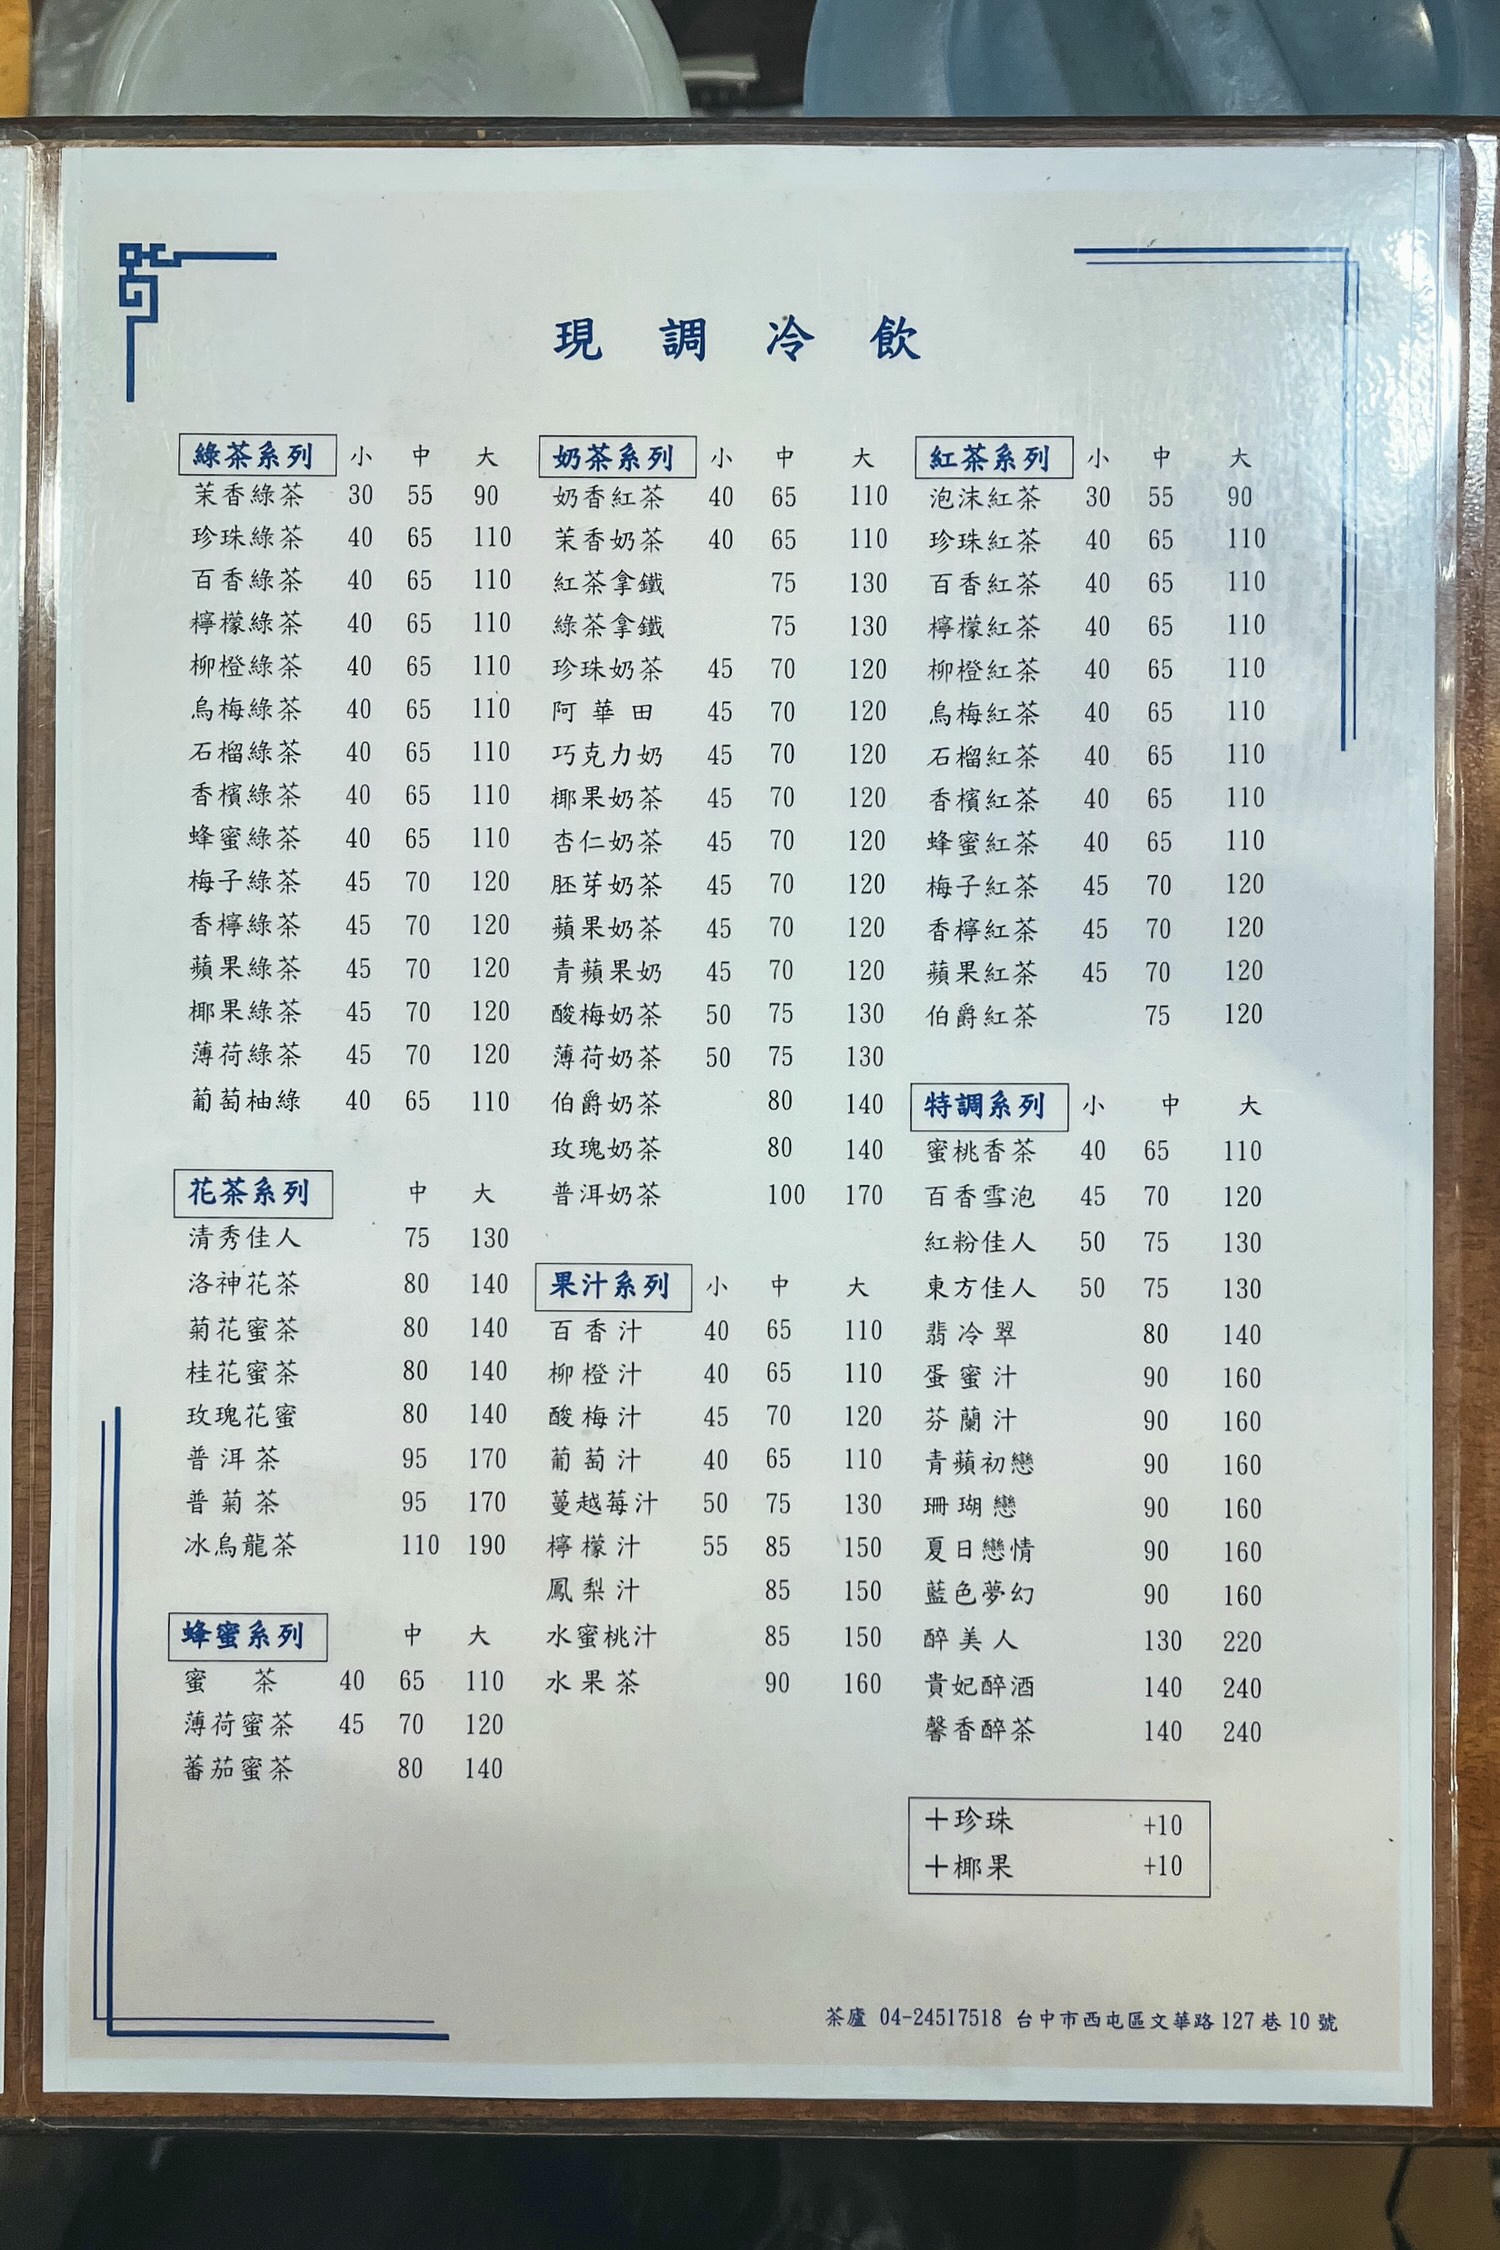 現調冷飲
綠茶系列 小 中 大
茉香綠茶 30 55 90
珍珠綠茶 40 65 110
百香綠茶 40 65 110
檸檬綠茶 40 65 110
柳橙綠茶 40 65 110
烏梅綠茶 40 65 110
石榴綠茶 40 65 110
香檳綠茶 40 65 110
蜂蜜綠茶 40 65 110
梅子綠茶 45 70 120
香檸綠茶 45 70 120
蘋果綠茶 45 70 120
椰果綠茶 45 70 120
薄荷綠茶 45 70 120
葡萄柚綠 40 65 110
花茶系列 中 大
清秀佳人 75 130
洛神花茶 80 140
菊花蜜茶 80 140
桂花蜜茶 80 140
玫瑰花蜜 80 140
普洱茶 95 170
普菊茶 95 170
冰烏龍茶 110 190
蜂蜜系列 中 大
蜜茶 40 65 110
薄荷蜜茶 45 70 120
蕃茄蜜茶 80 140
奶茶系列 小 中 大
奶香紅茶 40 65 110
茉香奶茶 40 65 110
紅茶拿鐵 75 130
綠茶拿鐵 75 130
珍珠奶茶 45 70 120
阿華田 45 70 120
巧克力奶 45 70 120
椰果奶茶 45 70 120
杏仁奶茶 45 70 120
胚芽奶茶 45 70 120
蘋果奶茶 45 70 120
青蘋果奶 45 70 120
酸梅奶茶 50 75 130
薄荷奶茶 50 75 130
伯爵奶茶 80 140
玫瑰奶茶 80 140
普洱奶茶 100 170
果汁系列 小 中 大
百香汁 40 65 110
柳橙汁 40 65 110
酸梅汁 45 70 120
葡萄汁 40 65 110
蔓越莓汁 50 75 130
檸檬汁 55 85 150
鳳梨汁 85 150
水蜜桃汁 85 150
水果茶 90 160
紅茶系列 小 中 大
泡沫紅茶 30 55 90
珍珠紅茶 40 65 110
百香紅茶 40 65 110
檸檬紅茶 40 65 110
柳橙紅茶 40 65 110
烏梅紅茶 40 65 110
石榴紅茶 40 65 110
香檳紅茶 40 65 110
蜂蜜紅茶 40 65 110
梅子紅茶 45 70 120
香檸紅茶 45 70 120
蘋果紅茶 45 70 120
伯爵紅茶 75 120
特調系列 小 中 大
蜜桃香茶 40 65 110
百香雪泡 45 70 120
紅粉佳人 50 75 130
東方佳人 50 75 130
翡冷翠 80 140
蛋蜜汁 90 160
芬蘭汁 90 160
青蘋初戀 90 160
珊瑚戀 90 160
夏日戀情 90 160
藍色夢幻 90 160
醉美人 130 220
貴妃醉酒 140 240
馨香醉茶 140 240
＋珍珠 +10
＋椰果 +10
茶廬 04-24517518 台中市西屯區文華路127巷10號